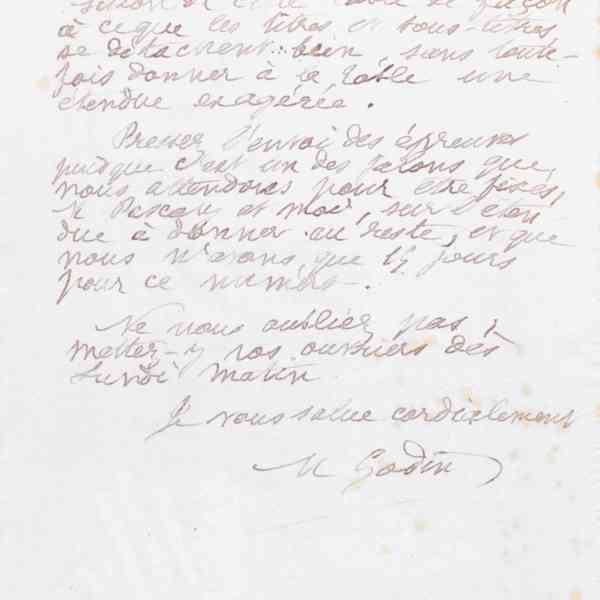 cette table de façon
à ce que les titres et sous-titres
se détachent bien, sans toute-
fois donner à la table une
étendue exagérée.
Presser l'envoi des épreuves
puisque c'est un des jalons que
nous attendons pour être fixés,
M Pascaly et moi, sur l'éten
due à donner au reste, et que
nous n'avons que 15 jours
pour ce numéro.
Ne nous oublier pas,
mettez-y vos ouvriers dès
lundi matin
Je vous salue cordialement
M Godin